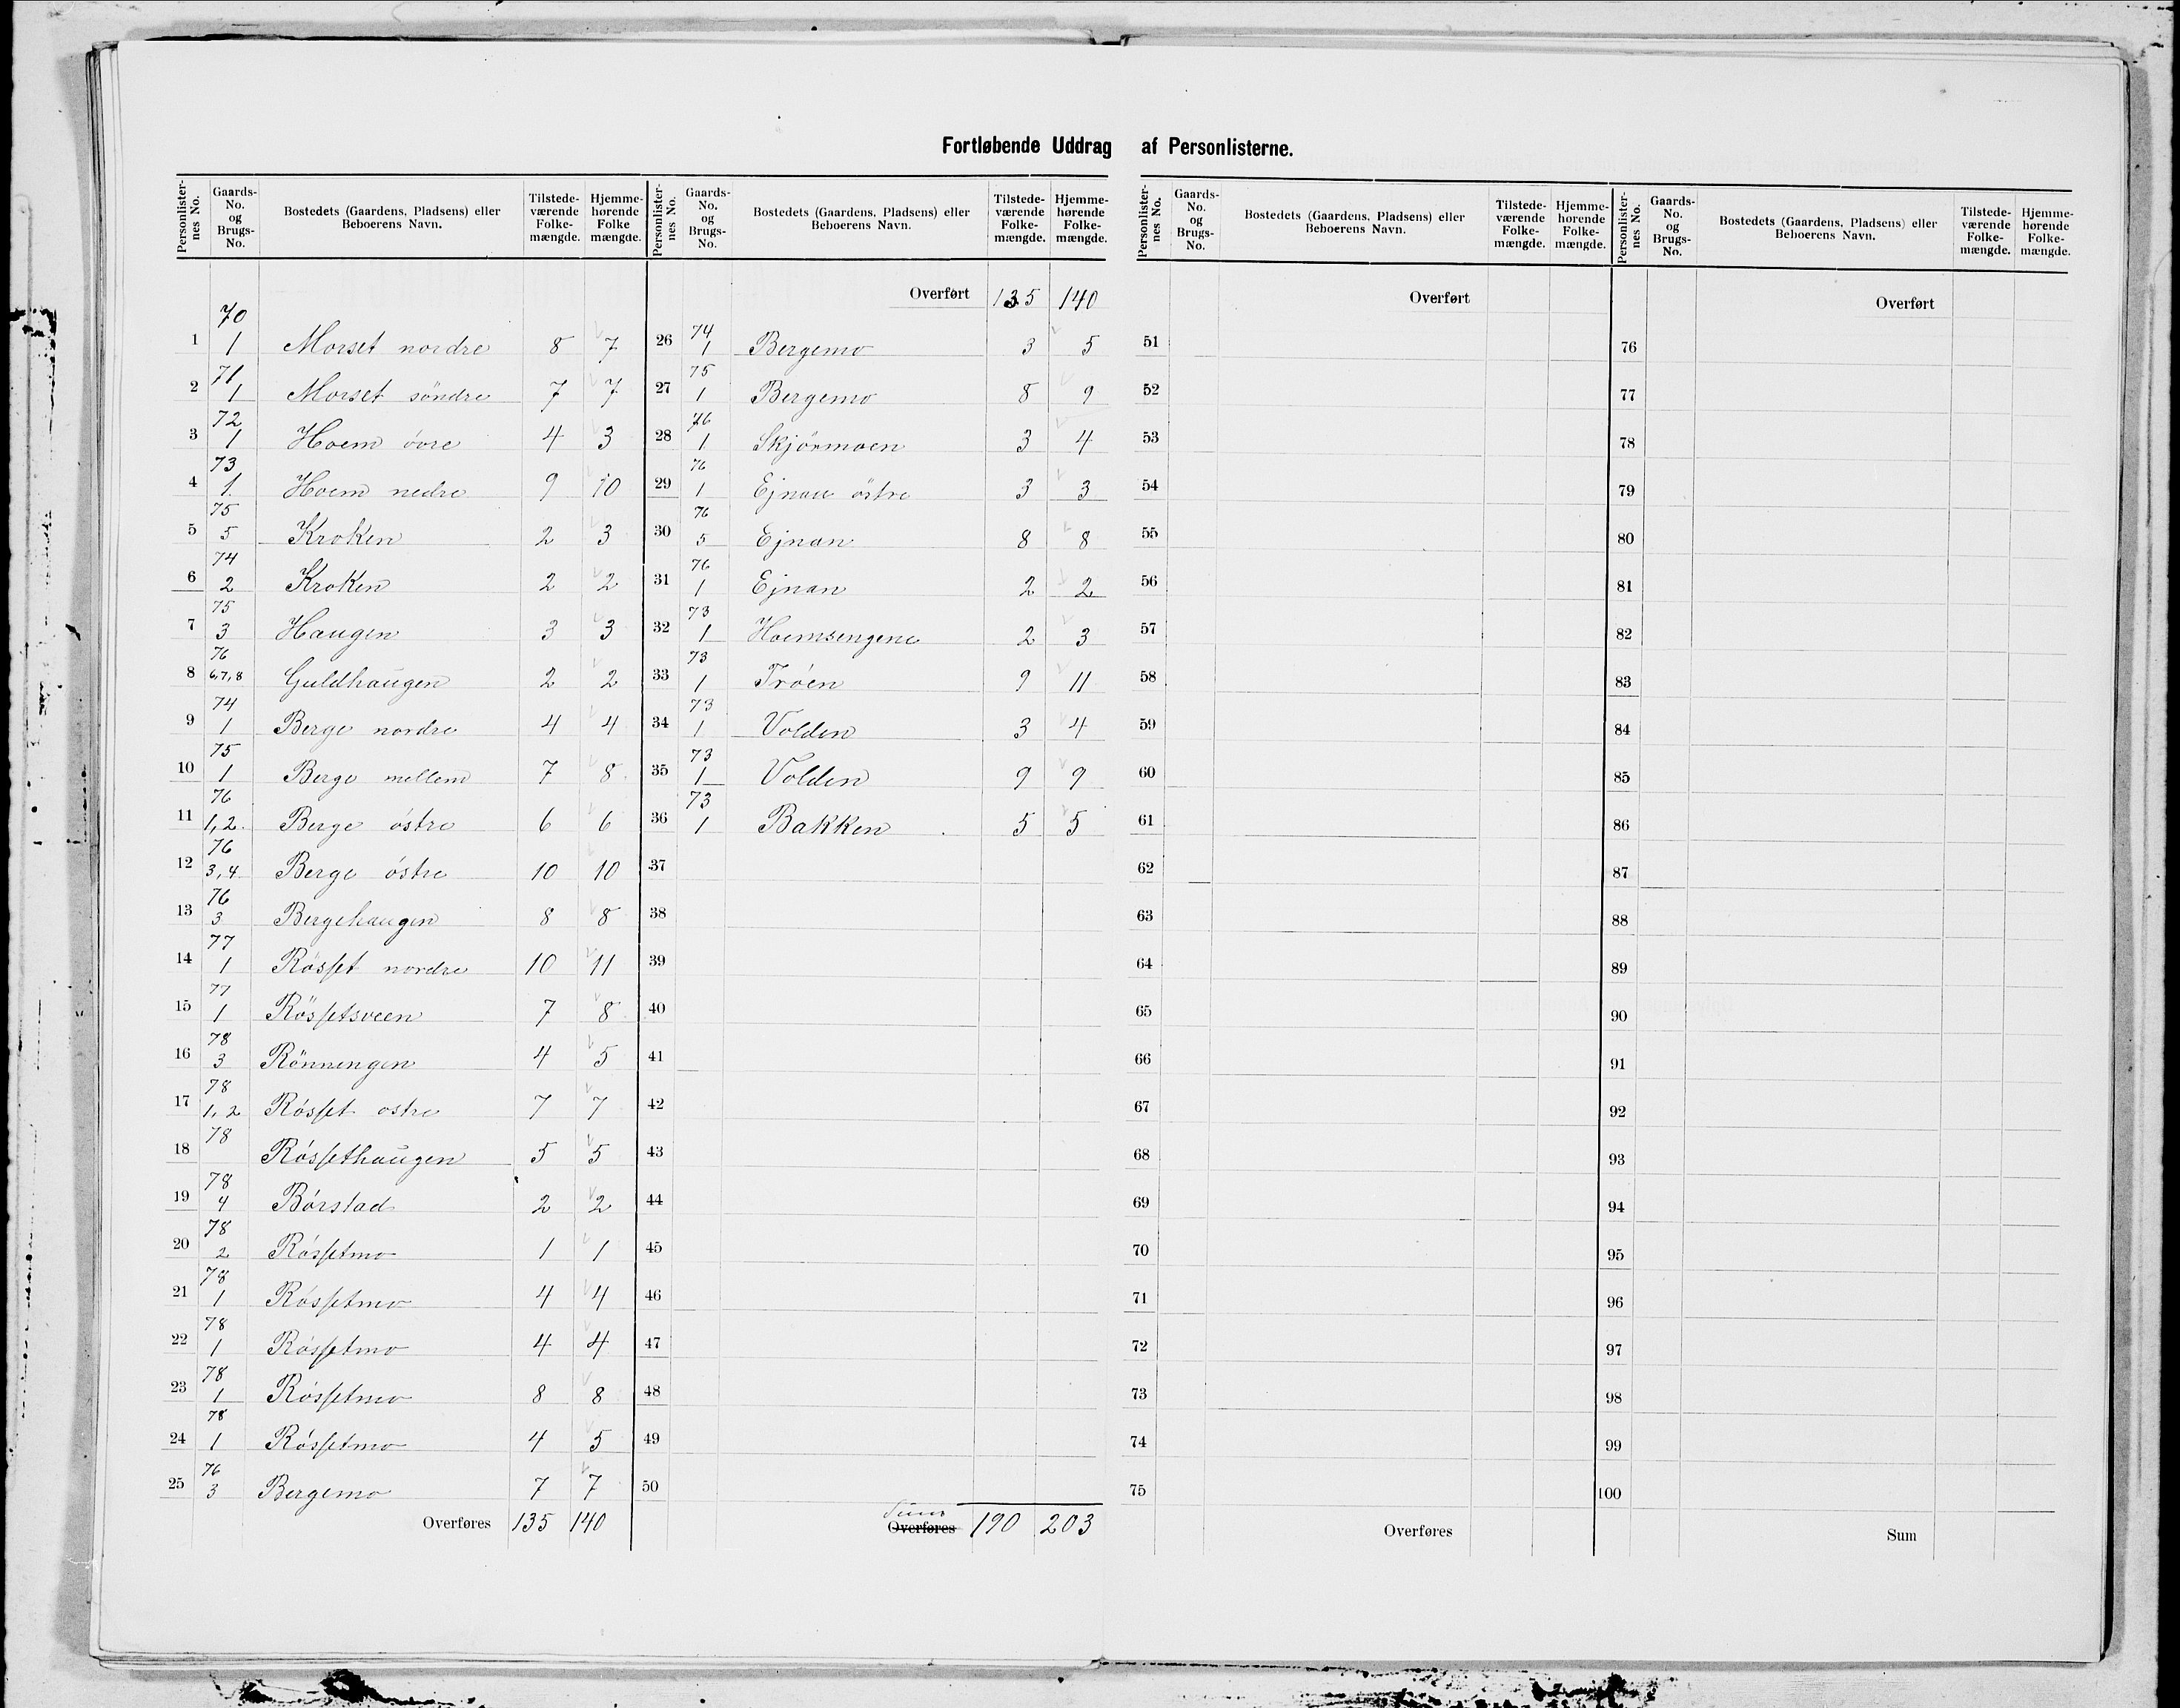 Fortløbende Uddrag af Personlisterne.
Personlister-nes No. | Gaards-No. og Brugs-No. | Bostedets (Gaardens, Pladsens) eller Beboerens Navn. | Tilstede-værende Folke-mængde. | Hjemme-hørende Folke mængde.
1 | 70 1 | Morset nordre | 8 | 7
2 | 71 1 | Morset söndre | 7 | 7
3 | 72 1 | Hoem óvre | 4 | 3
4 | 73 1 | Hoem nedre | 9 | 10
5 | 75 5 | Kroken | 2 | 3
6 | 74 2 | Kroken | 2 | 2
7 | 75 3 | Haugen | 3 | 3
8 | 76 6,7,8 | Guldhaugen | 2 | 2
9 | 74 1 | Berge nordre | 4 | 4
10 | 75 1 | Berge mellem | 7 | 8
11 | 76 1,2. | Berge óstre | 6 | 6
12 | 76 3,4. | Berge óstre | 10 | 10
13 | 76 3 | Bergehaugen | 8 | 8
14 | 77 1 | Rósset nordre | 10 | 11
15 | 77 1 | Rössetsveen | 7 | 8
16 | 78 3 | Rönningen | 4 | 5
17 | 78 1,2 | Rósset ostre | 7 | 7
18 | 78 | Róssethaugen | 5 | 5
19 | 78 4 | Bórstad | 2 | 2
20 | 78 2 | Róssetmo | 1 | 1
21 | 78 1 | Róssetmo | 4 | 4
22 | 78 1 | Róssetmo | 4 | 4
23 | 78 1 | Róssetmo | 8 | 8
24 | 78 1 | Róssetmo | 4 | 5
25 | 76 3 | Bergemo | 7 | 7
Overføres | 135 | 140
Personlister-nes No. | Gaards-No. og Brugs-No. | Bostedets (Gaardens, Pladsens) eller Beboerens Navn. | Tilstede-værende Folke-mængde. | Hjemme-hørende Folke-mængde.
Overført | 135 | 140
26 | 74 1 | Bergemo | 3 | 5
27 | 75 1 | Bergemo | 8 | 9
28 | 76 1 | Skjörmoen | 3 | 4
29 | 76 1 | Ejnan östre | 3 | 3
30 | 76 5 | Ejnan | 8 | 8
31 | 76 1 | Ejnan | 2 | 2
32 | 73 1 | Hoemsengene | 2 | 3
33 | 73 1 | Tróen | 9 | 11
34 | 73 1 | Volden | 3 | 4
35 | 73 1 | Volden | 9 | 9
36 | 73 1 | Bakken | 5 | 5
37
38
39
40
41
42
43
44
45
46
47
48
49
50
Sum
Overføres | 190 | 203
Personlister-nes No. | Gaards-No. og Brugs-No. | Bostedets (Gaardens, Pladsens) eller Beboerens Navn. | Tilstede-værende Folke-mængde. | Hjemme-hørende Folke-mængde.
Overført
51
52
53
54
55
56
57
58
59
60
61
62
63
64
65
66
67
68
69
70
71
72
73
74
75
Overføres
Personlister-nes No. | Gaards-No. og Brugs-No. | Bostedets (Gaardens, Pladsens) eller Beboerens Navn. | Tilstede-værende Folke-mængde. | Hjemme-hørende Folke-mængde.
Overført
76
77
78
79
80
81
82
83
84
85
86
87
88
89
90
91
92
93
94
95
96
97
98
99
100
Sum